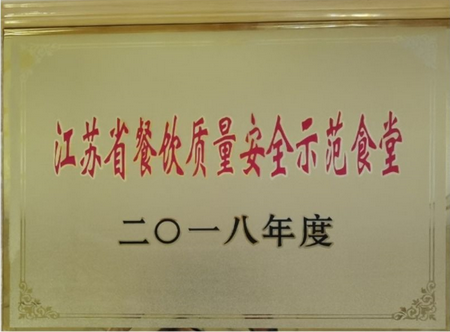 江苏省餐饮质量安全示范食堂
二〇一八年度